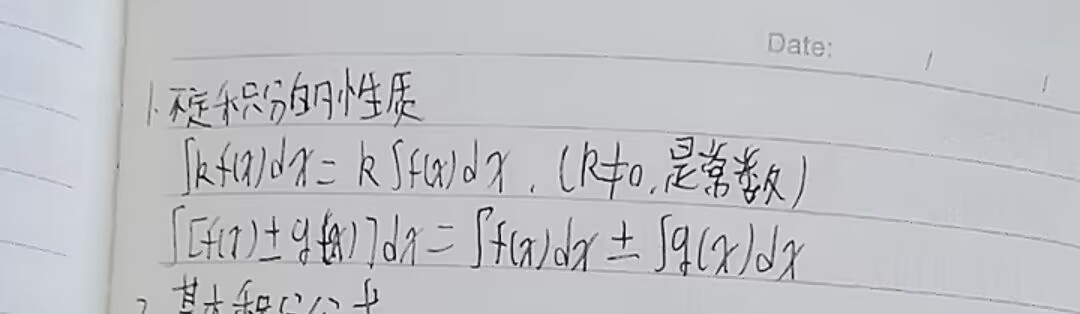 Date: / /
1. 不定积分的性质
∫kf(x)dx = k∫f(x)dx. (k≠0,是常数)
∫[f(x)±g(x)]dx = ∫f(x)dx ± ∫g(x)dx
2. 基本积分公式